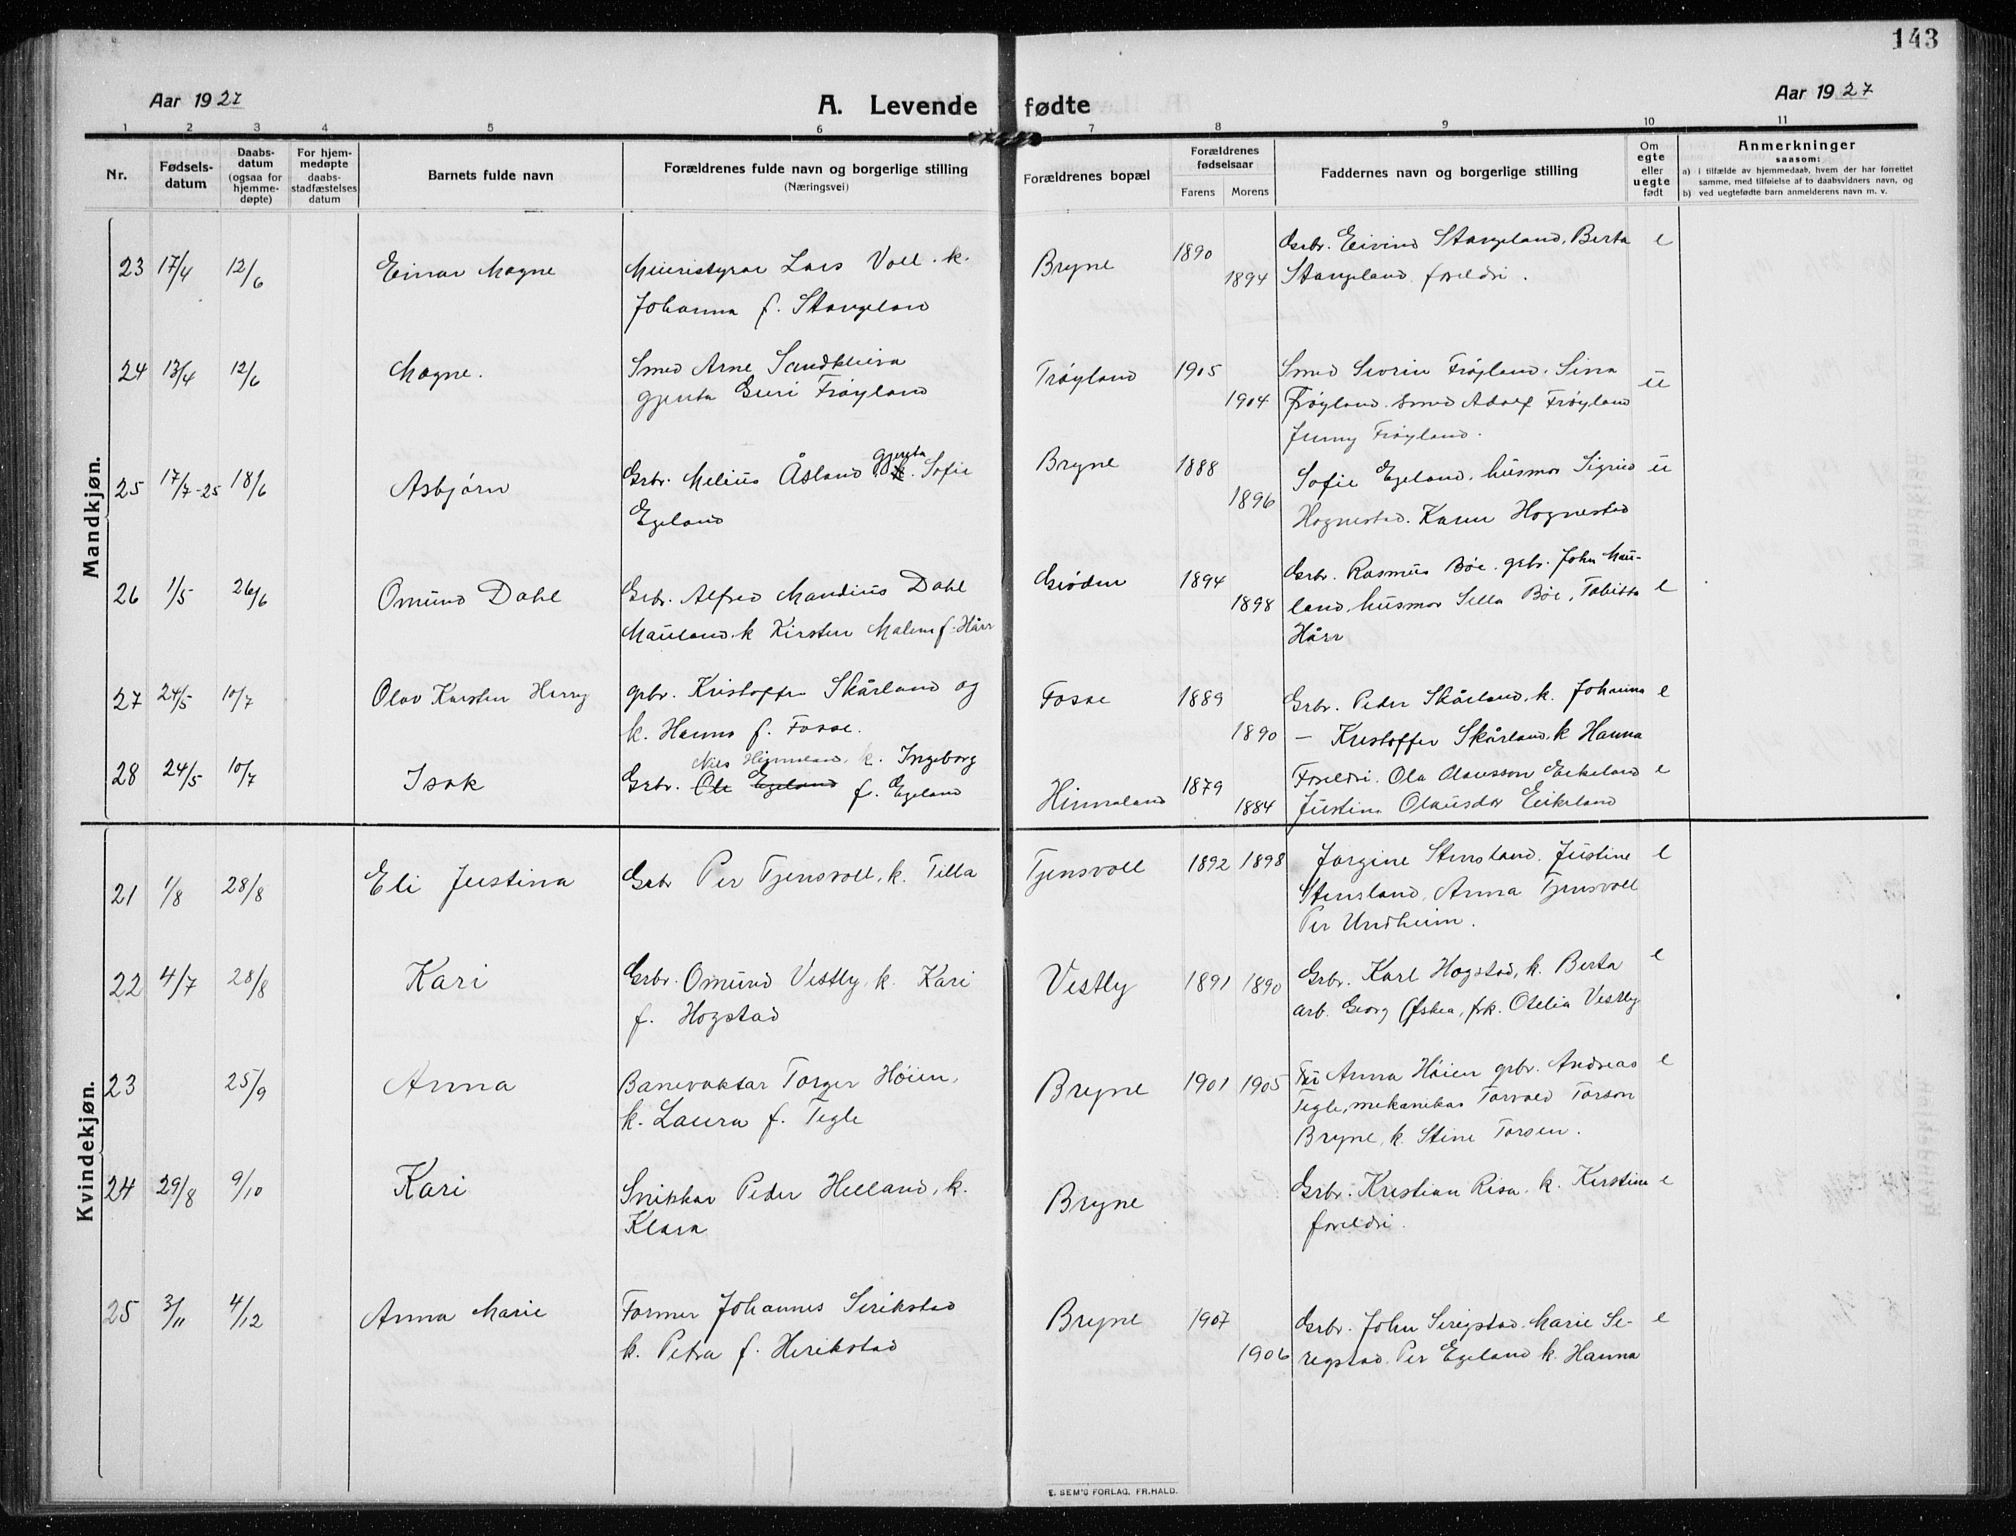 143
Aar 1927
A. Levende fødte
Aar 1927
1 2 3 4 5 6 7 8 9 10 11
Nr.
Fødsels-
datum
Daabs-
datum
(ogsaa for
hjemme-
døpte)
For hjem-
medøpte
daabs-
stadfæstelses
datum
Barnets fulde navn
Forældrenes fulde navn og borgerlige stilling
(Næringsvei)
Forældrenes bopæl
Forældrenes
fødselsaar
Farens Morens
Faddernes navn og borgerlige stilling
Om
egte
eller
uegte
født
Anmerkninger
saasom:
a) i tilfælde av hjemmedaab, hvem der har forrettet
samme, med tilføielse af to daabsvidners navn, og
b) ved uegtefødte barn anmelderens navn m. v.
Mandkjøn.
23 17/4 12/6 Einar Magne
Meieristyrar Lars Voll. k.
Johanna f. Stangeland
Bryne 1890 1894
Grbr. Eivind Stangeland, Berta
Stangeland foreldri.
e
24 13/4 12/6 Magne.
Smed Arne Sandkleiva
gjenta Guri Frøyland
Frøyland 1905 1904
Smed Severin Frøyland. Sina
Frøyland. Smed Adolf Frøyland
Jenny Frøyland.
u
25 17/7-25 18/6 Asbjørn
Grbr. Melius Åsland gjenta k. Sofie
Egeland
Bryne 1888 1896
Sofie Egeland, husmor Sigrid
Hognestad. Karen Hognestad
u
26 1/5 26/6 Omund Dahl
Grbr. Alfred Mandius Dahl
Mauland. k Kirsten Malene f. Hårr
Grøden 1894 1898
Grbr. Rasmus Bøe. grbr. John Mau-
land, husmor Sella Bøe, Tabitta
Hårr
e
27 24/5 10/7 Olav Karsten Herry
grbr. Kristoffer Skårland og
k. Hanna f. Fosse.
Fosse 1889 1890
Grbr. Peder Skårland, k. Johanna
— Kristoffer Skårland. k Hanna
e
28 24/5 10/7 Isak
Nils Hinnaland, k. Ingeborg
Grbr. Ole Egeland f. Egeland
Hinnaland 1879 1884
Foreldri. Ola Olausson Eikeland
Justina Olausdor Eikeland
e
Kvindekjøn.
21 1/8 28/8 Eli Justina
Grbr Per Tjensvoll, k. Tilla
Tjensvoll 1892 1898
Jorgine Stensland. Justine
Stensland, Anna Tjensvoll
Per Undheim.
e
22 4/7 28/8 Kari
Grbr. Omund Vestly, k. Kari
f. Hogstad
Vestly 1891 1890
Grbr. Karl Hogstad, k. Berta
arb. Georg Østrea, frk. Otelia Vestly
e
23 25/9 Anna
Banevaktar Torger Høien,
k. Laura f. Tegle
Bryne 1901 1905
Fru Anna Høien grbr. Andreas
Tegle, mekanikar Torvald Torson
Bryne, k. Stine Torsen.
e
24 29/8 9/10 Kari
Snikkar Peder Helland, k.
Klara
Bryne
Grbr. Kristian Risa. k. Kirstine
foreldri.
e
25 3/11 4/12 Anna Marie
Former Johannes Serikstad
k. Petra f. Herikstad
Bryne 1907 1906
Grbr. John Serigstad. Marie Se-
rigstad. Per Egeland k. Hanna
e
E. SEM'S FORLAG, FR.HALD.